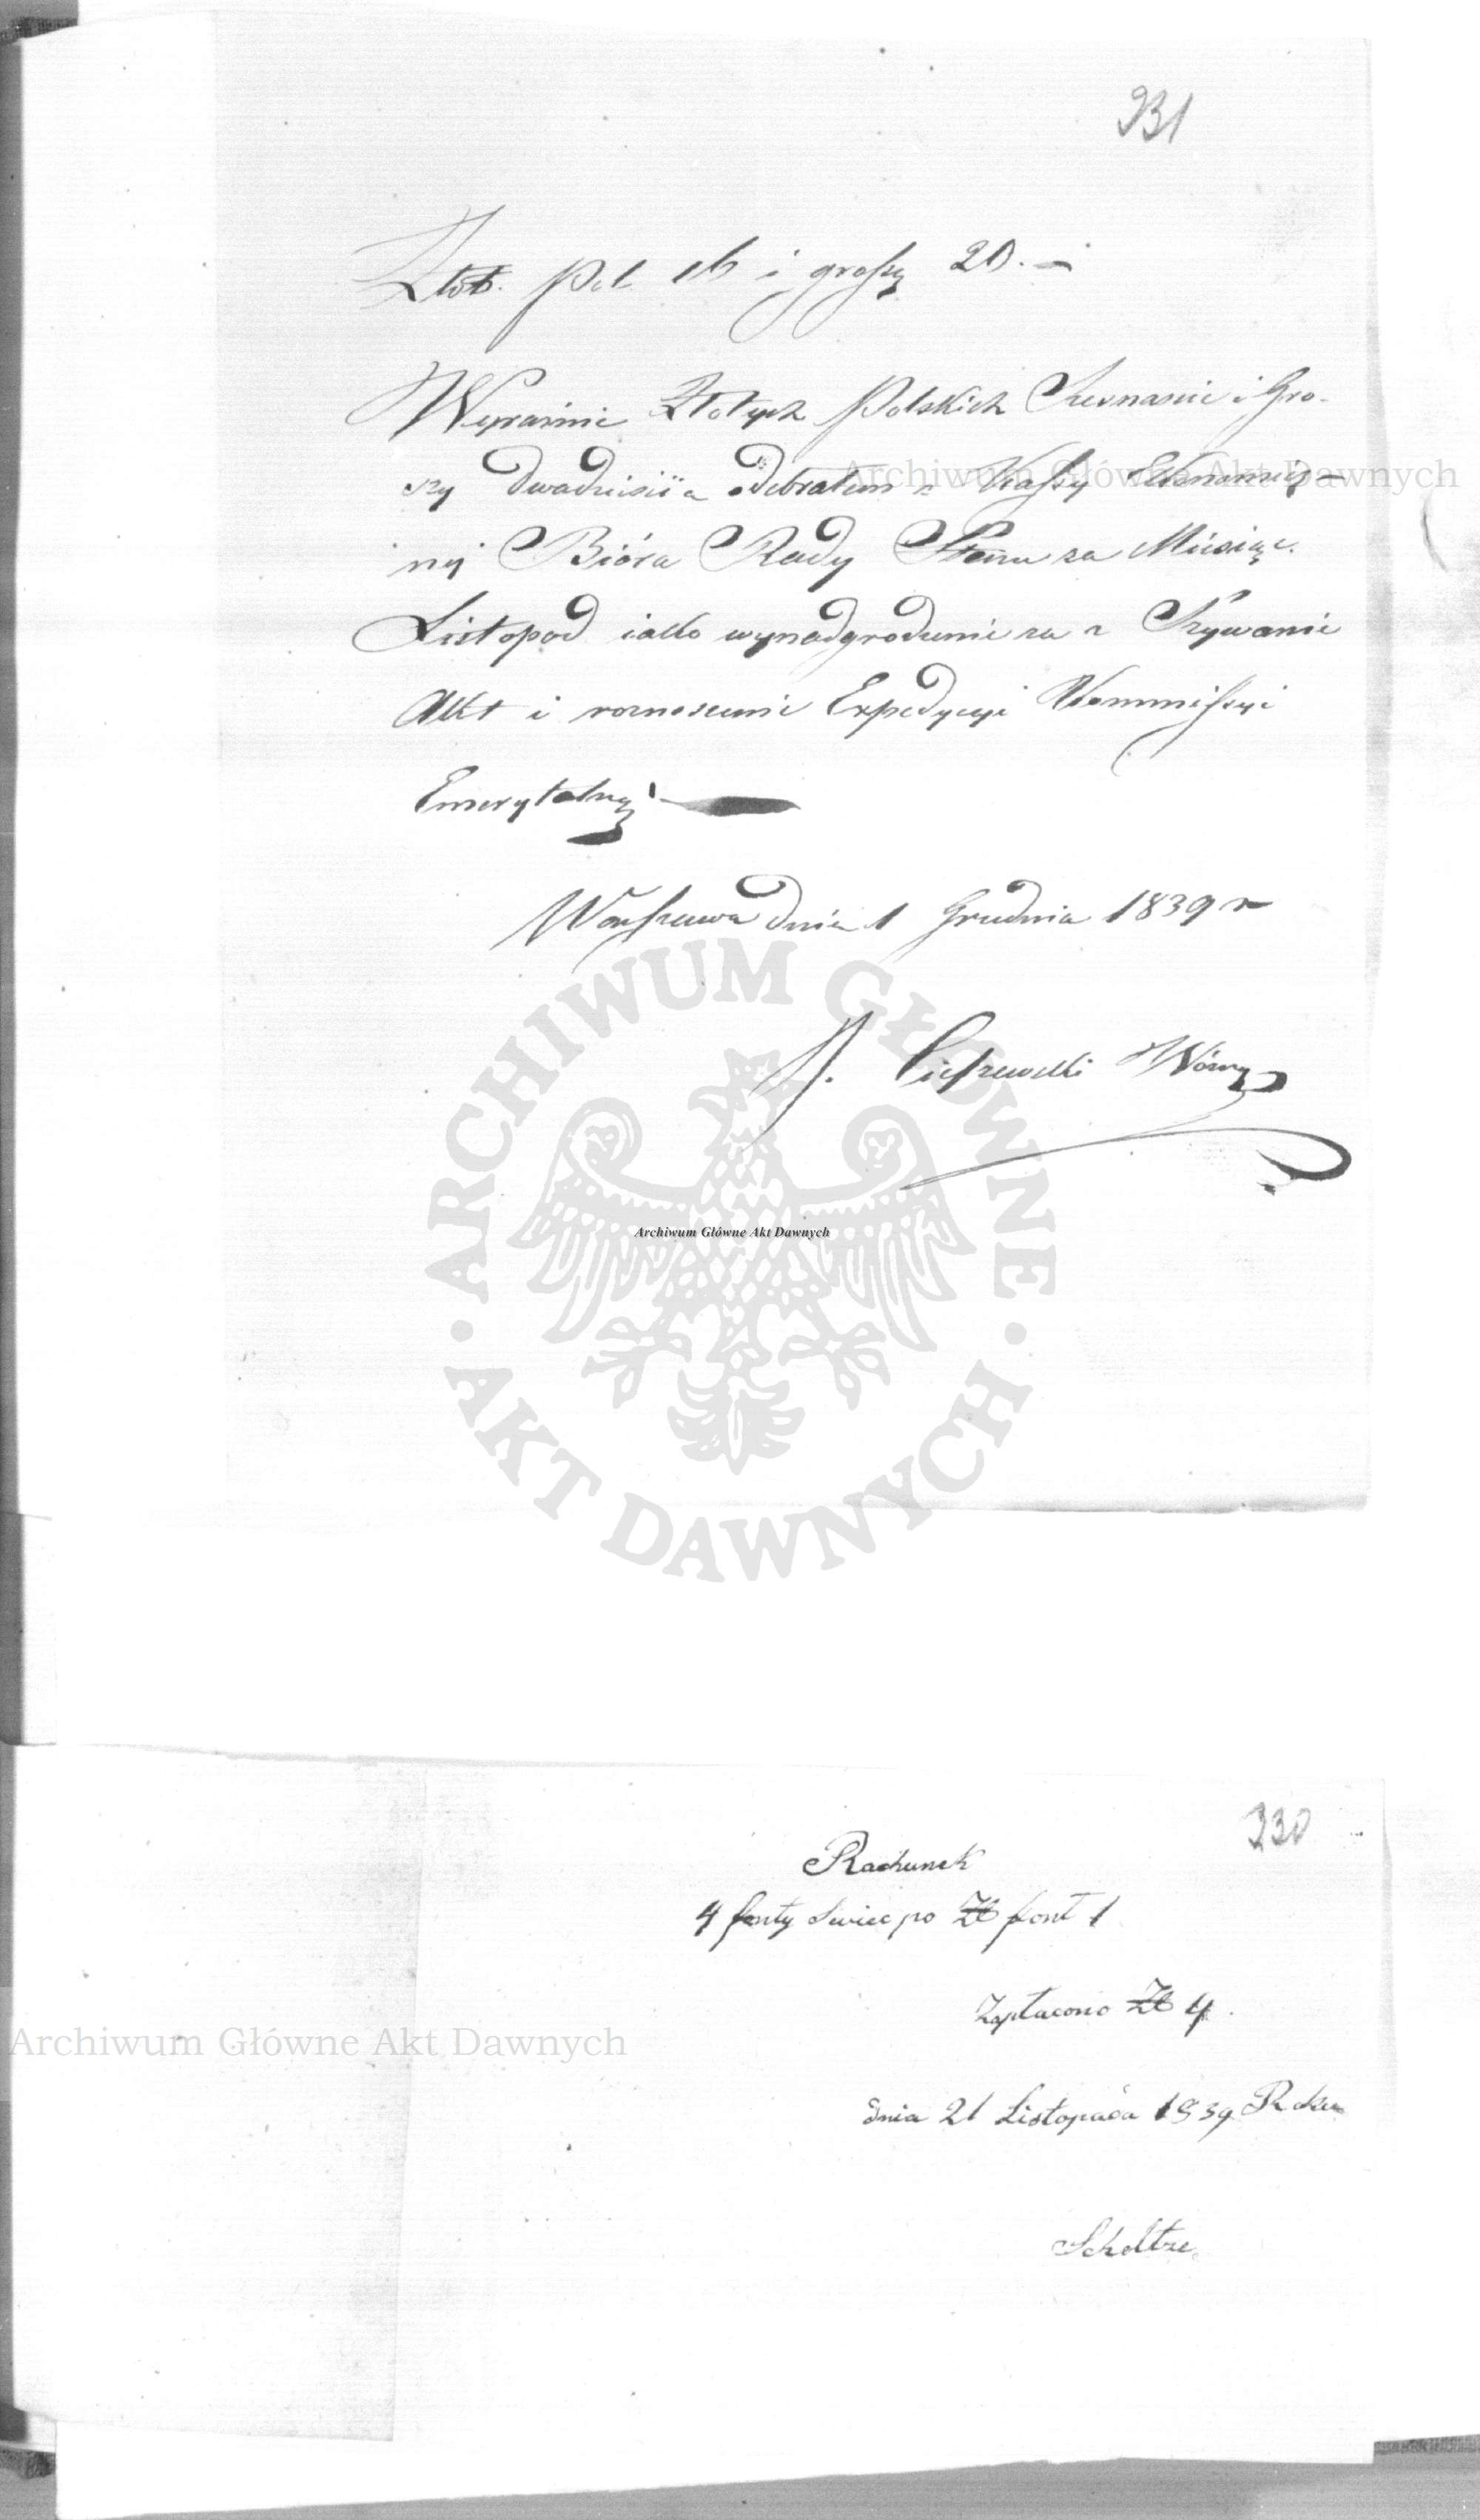 331
Złot. Pol. 16 i groszy 20. —
Wyraźnie Złotych Polskich Szesnaście i Gro-
szy dwadzieścia odebrałem z Kassy Ekonomicz-
nej Bióra Rady Stanu za Miesiąc
Listopad iako wynadgrodzenie za z Szywanie
Akt i roznoszenie Expedycyi Kommissyi
Emerytalnej
Warszawa dnia 1 Grudnia 1839 r
Woźny
330
Rachunek
4 fonty swiec po Zł font 1
Zapłacono Zł 4.
dnia 21 Listopada 1839 Roku
Scholtze
Archiwum Główne Akt Dawnych
Archiwum Główne Akt Dawnych
Archiwum Główne Akt Dawnych
ARCHIWUM GŁÓWNE · AKT DAWNYCH ·